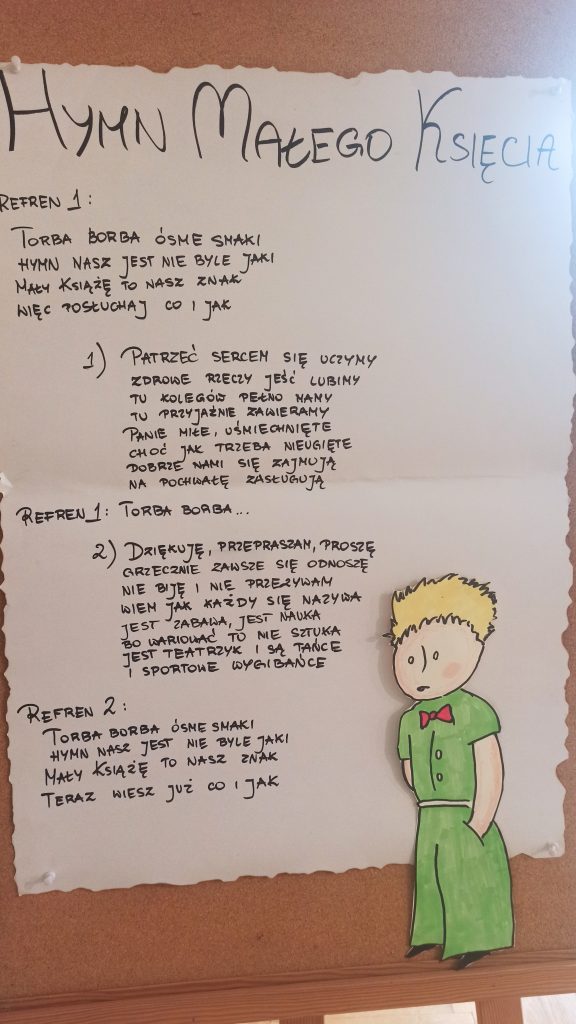 HYMN MAŁEGO KSIĘCIA
REFREN 1:
TORBA BORBA ÓSME SMAKI
HYMN NASZ JEST NIE BYLE JAKI
MAŁY KSIĄŻĘ TO NASZ ZNAK
WIĘC POSŁUCHAJ CO I JAK
1) PATRZEĆ SERCEM SIĘ UCZYMY
ZDROWE RZECZY JEŚĆ LUBIMY
TU KOLEGÓW PEŁNO MAMY
TU PRZYJAŹNIE ZAWIERAMY
PANIE MIŁE, UŚMIECHNIĘTE
CHOĆ JAK TRZEBA NIEUGIĘTE
DOBRZE NAMI SIĘ ZAJMUJĄ
NA POCHWAŁĘ ZASŁUGUJĄ
REFREN 1: TORBA BORBA...
2) DZIĘKUJĘ, PRZEPRASZAM, PROSZĘ
GRZECZNIE ZAWSZE SIĘ ODNOSZĘ
NIE BIJĘ I NIE PRZEZYWAM
WIEM JAK KAŻDY SIĘ NAZYWA
JEST ZABAWA, JEST NAUKA
BO WARIOWAĆ TO NIE SZTUKA
JEST TEATRZYK I SĄ TAŃCE
I SPORTOWE WYGIBAŃCE
REFREN 2:
TORBA BORBA ÓSME SMAKI
HYMN NASZ JEST NIE BYLE JAKI
MAŁY KSIĄŻĘ TO NASZ ZNAK
TERAZ WIESZ JUŻ CO I JAK